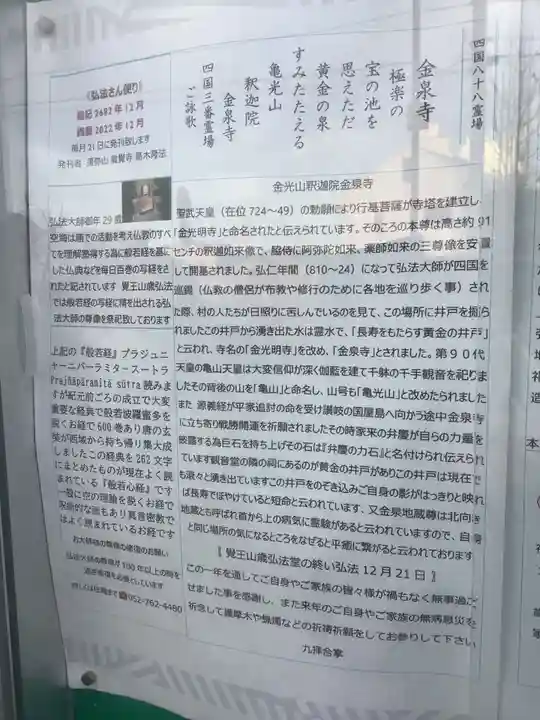 四国八十八霊場
金泉寺
極楽の
宝の池を
思えただ
黄金の泉
すみたたえる
亀光山
釈迦院
金泉寺
四国三番霊場
ご詠歌
《弘法さん便り》
皇紀2682年12月
西暦2022年12月
毎月21日に発刊致します
金光山釈迦院金泉寺
聖武天皇（在位724～49）の勅願により行基菩薩が寺塔を建立し
「金光明寺」と命名されたと伝えられています。そのころの本尊は高さ約91
センチの釈迦如来像で、脇侍に阿弥陀如来、薬師如来の三尊像を安置
して開基されました。弘仁年間（810～24）になって弘法大師が四国を
巡錫（仏教の僧侶が布教や修行のために各地を巡り歩く事）され
た際、村の人たちが日照りに苦しんでいるのを見て、この場所に井戸を掘ら
れましたこの井戸から湧き出た水は霊水で、「長寿をもたらす黄金の井戸」
と云われ、寺名の「金光明寺」を改め、「金泉寺」とされました。第９０代
天皇の亀山天皇は大変信仰が深く伽藍を建て千躰の千手観音を祀りま
したその背後の山を「亀山」と命名し、山号も「亀光山」と改められました
また 源義経が平家追討の命を受け讃岐の国屋島へ向かう途中金泉寺
に立ち寄り戦勝開運を祈願されましたその時家来の弁慶が自らの力量を
披露する為巨石を持ち上げその石は『弁慶の力石』と名付けられ伝えられ
ています観音堂の隣の祠にあるのが黄金の井戸がありこの井戸は現在で
も滾々と湧き出ていますこの井戸をのぞき込みご自身の影がはっきりと映れ
ば長寿でぼやけていると短命と云われています、又金泉地蔵尊は北向き
地蔵とも呼ばれ首から上の病気に霊験があると云われていますので、自身
と同じ場所の気になるところをなぜると平癒に繋がると云われております
弘法大師御年29歳
空海は唐での活動を考え仏教のすべ
てを理解勝得する為に般若経を基に
した仏典などを毎日百巻の写経をさ
れたと記されています 覚王山歳弘法
では般若経の写経に精を出される弘
法大師の尊像を祭祀致しております
上記の『般若経』プラジュニ
ャーニーパーラミタースートラ
Prajñāpāramitā sūtra 読みま
すが紀元前ごろの成立で大変
重要な経典で般若波羅蜜多を
説くお経で600巻あり唐の玄
奘が西域から持ち帰り集大成
しましたこの経典を262文字
にまとめたものが現在よく親
まれている『般若心経』です
一般に空の理論を説くお経で
呪術的な面もあり真言密教で
はよく囲まれているお経です
お大師様の尊像の修復のお願い
弘法大師の尊像が100年以上の時を
052-762-4480
〖 覚王山歳弘法堂の終い弘法 12月21日 〗
この一年を通してご自身やご家族の皆々様が禍もなく無事過ご
せました事を感謝し、また来年のご自身やご家族の無病息災を
祈念して護摩木や蝋燭などの祈祷祈願をしてお参りして下さい
九拝合掌